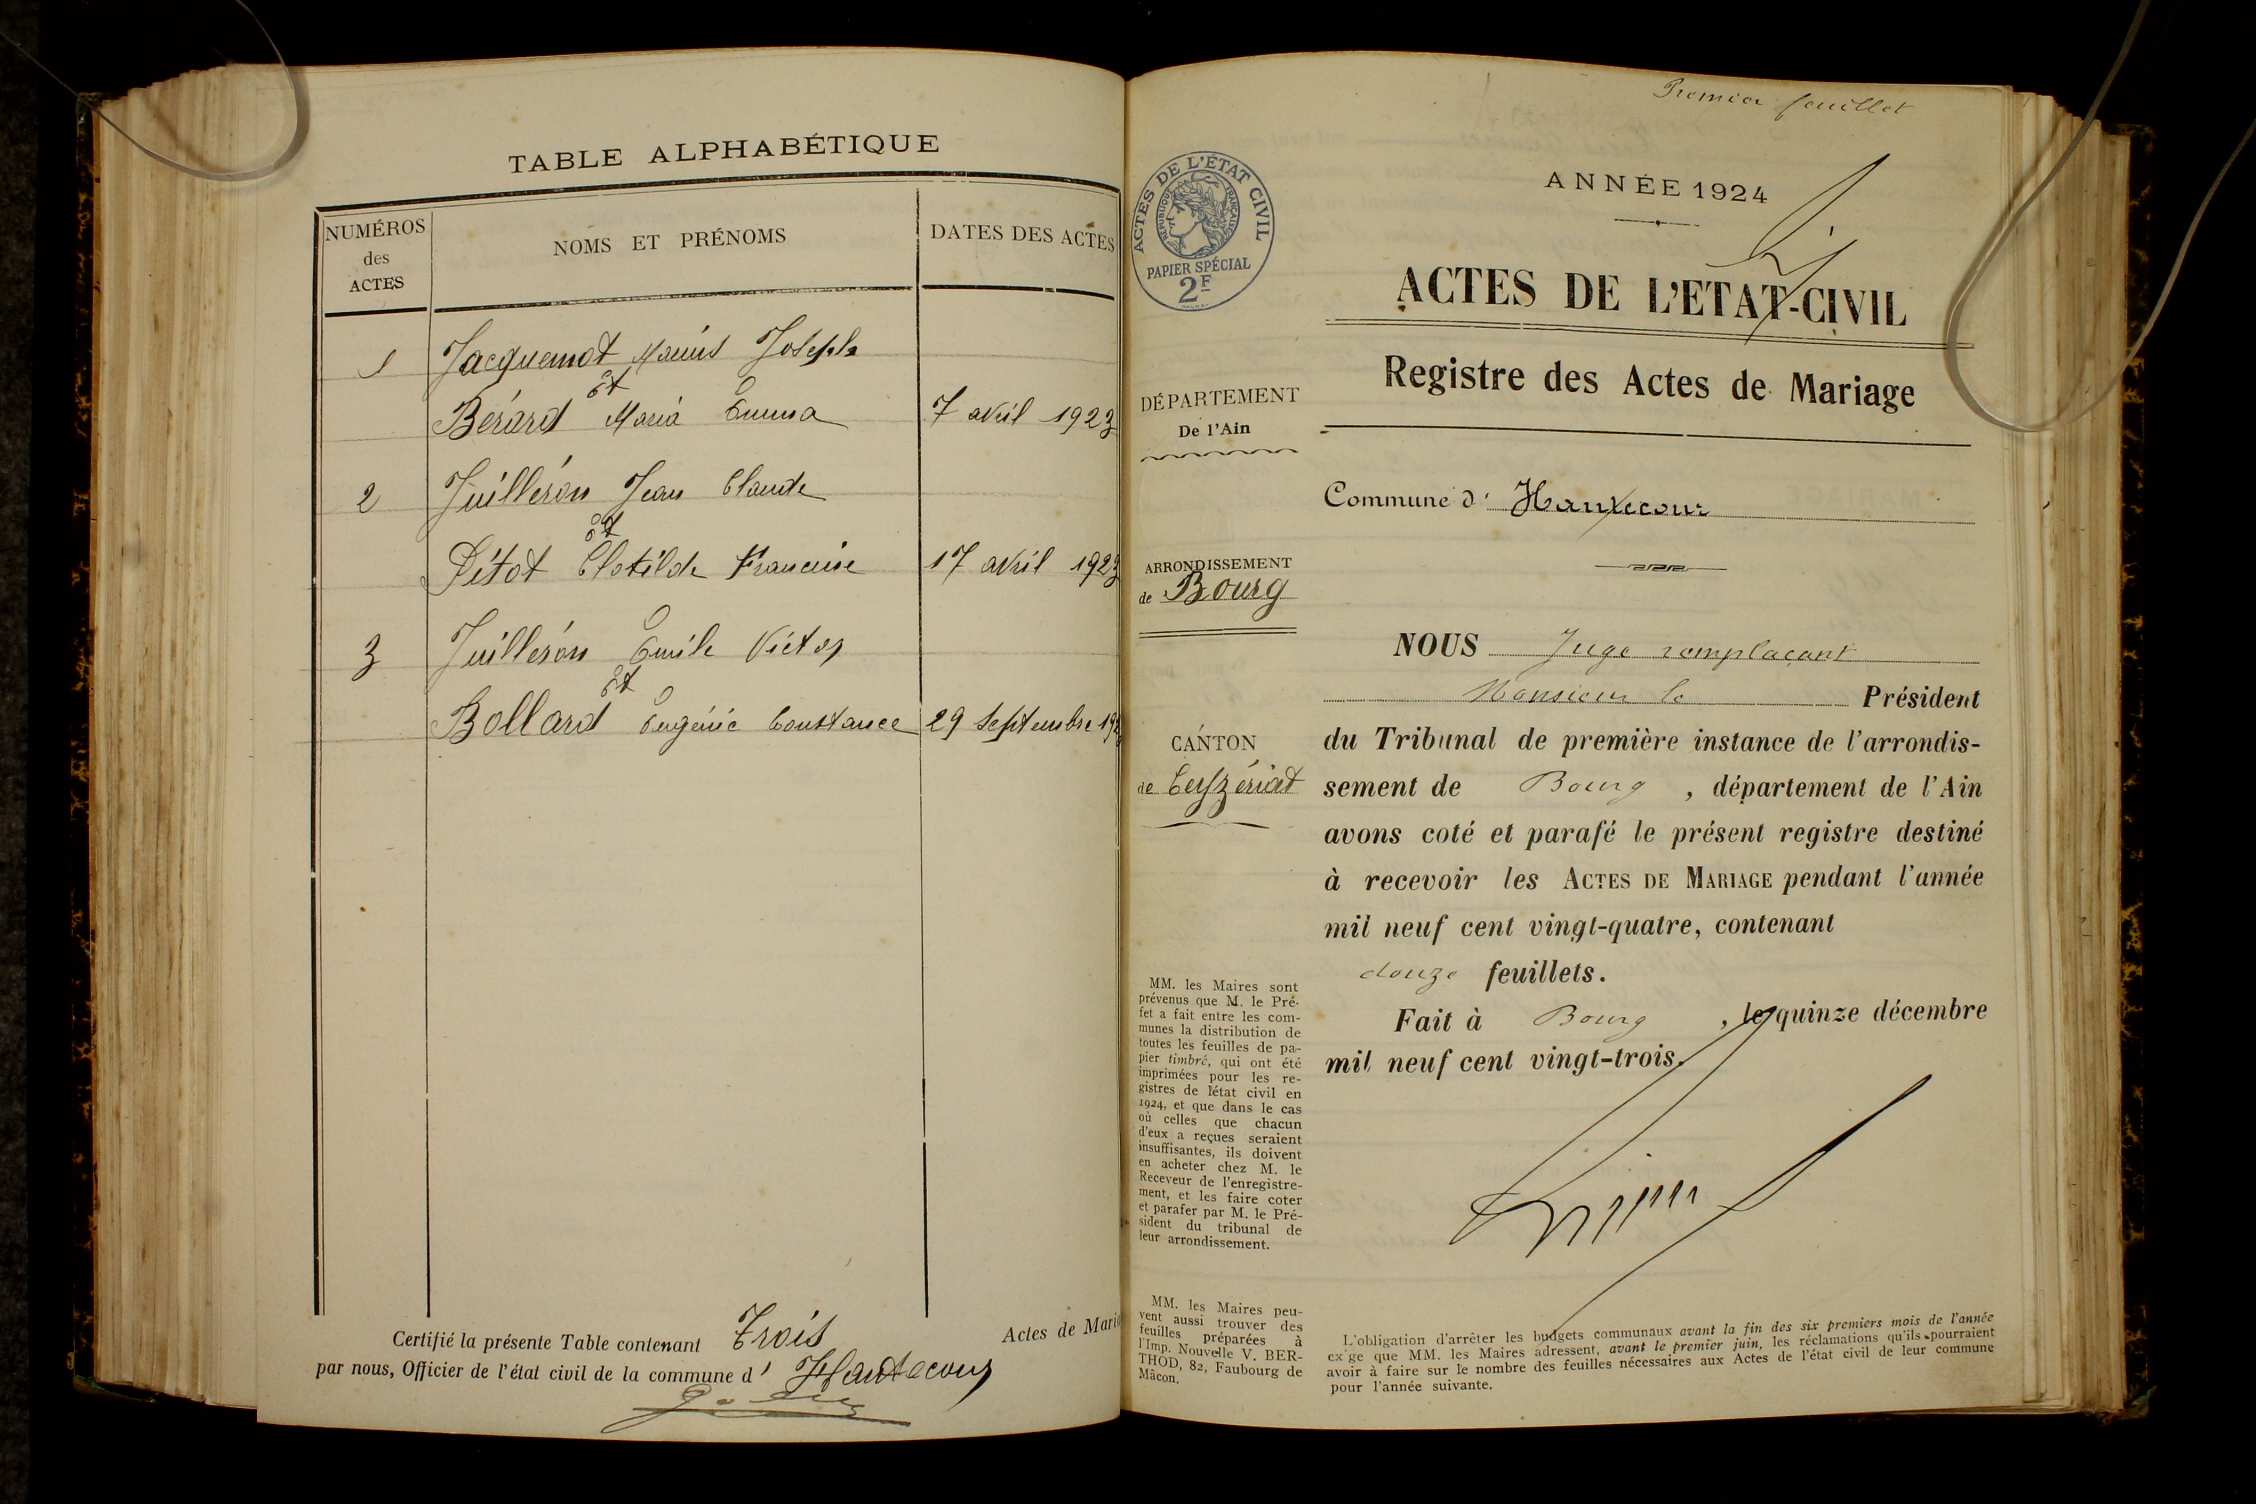 TABLE ALPHABÉTIQUE
NUMÉROS
des
ACTES
NOMS ET PRÉNOMS
DATES DES ACTES
1 Jacquemot Marius Joseph
et
Bérard Maria Emma 7 avril 1923
2 Juilléron Jean Claude
et
Pitot Clotilde Francine 17 avril 1923
3 Juilléron Emile Victor
et
Bollard Eugénie Constance 29 Septembre 192
Certifié la présente Table contenant Trois Actes de Maria
par nous, Officier de l'état civil de la commune d' Hautecour
Premier feuillet
ACTES DE L'ÉTAT CIVIL
RÉPUBLIQUE FRANÇAISE
PAPIER SPÉCIAL
2F
ANNÉE 1924
ACTES DE L'ETAT-CIVIL
Registre des Actes de Mariage
DÉPARTEMENT
De l'Ain
Commune d' Hautecour
ARRONDISSEMENT
de Bourg
CANTON
de Ceyzériat
NOUS Juge remplaçant
Monsieur le Président
du Tribunal de première instance de l'arrondis-
sement de Bourg, département de l'Ain
avons coté et parafé le présent registre destiné
à recevoir les ACTES DE MARIAGE pendant l'année
mil neuf cent vingt-quatre, contenant
douze feuillets.
Fait à Bourg, le quinze décembre
mil neuf cent vingt-trois.
MM. les Maires sont
prévenus que M. le Pré-
fet a fait entre les com-
munes la distribution de
toutes les feuilles de pa-
pier timbré, qui ont été
imprimées pour les re-
gistres de l'état civil en
1924, et que dans le cas
où celles que chacun
d'eux a reçues seraient
insuffisantes, ils doivent
en acheter chez M. le
Receveur de l'enregistre-
ment, et les faire coter
et parafer par M. le Pré-
sident du tribunal de
leur arrondissement.
MM. les Maires peu-
vent aussi trouver des
feuilles préparées à
l'Imp. Nouvelle V. BER-
THOD, 82, Faubourg de
Mâcon.
L'obligation d'arrêter les budgets communaux avant la fin des six premiers mois de l'année
exige que MM. les Maires adressent, avant le premier juin, les réclamations qu'ils pourraient
avoir à faire sur le nombre des feuilles nécessaires aux Actes de l'état civil de leur commune
pour l'année suivante.